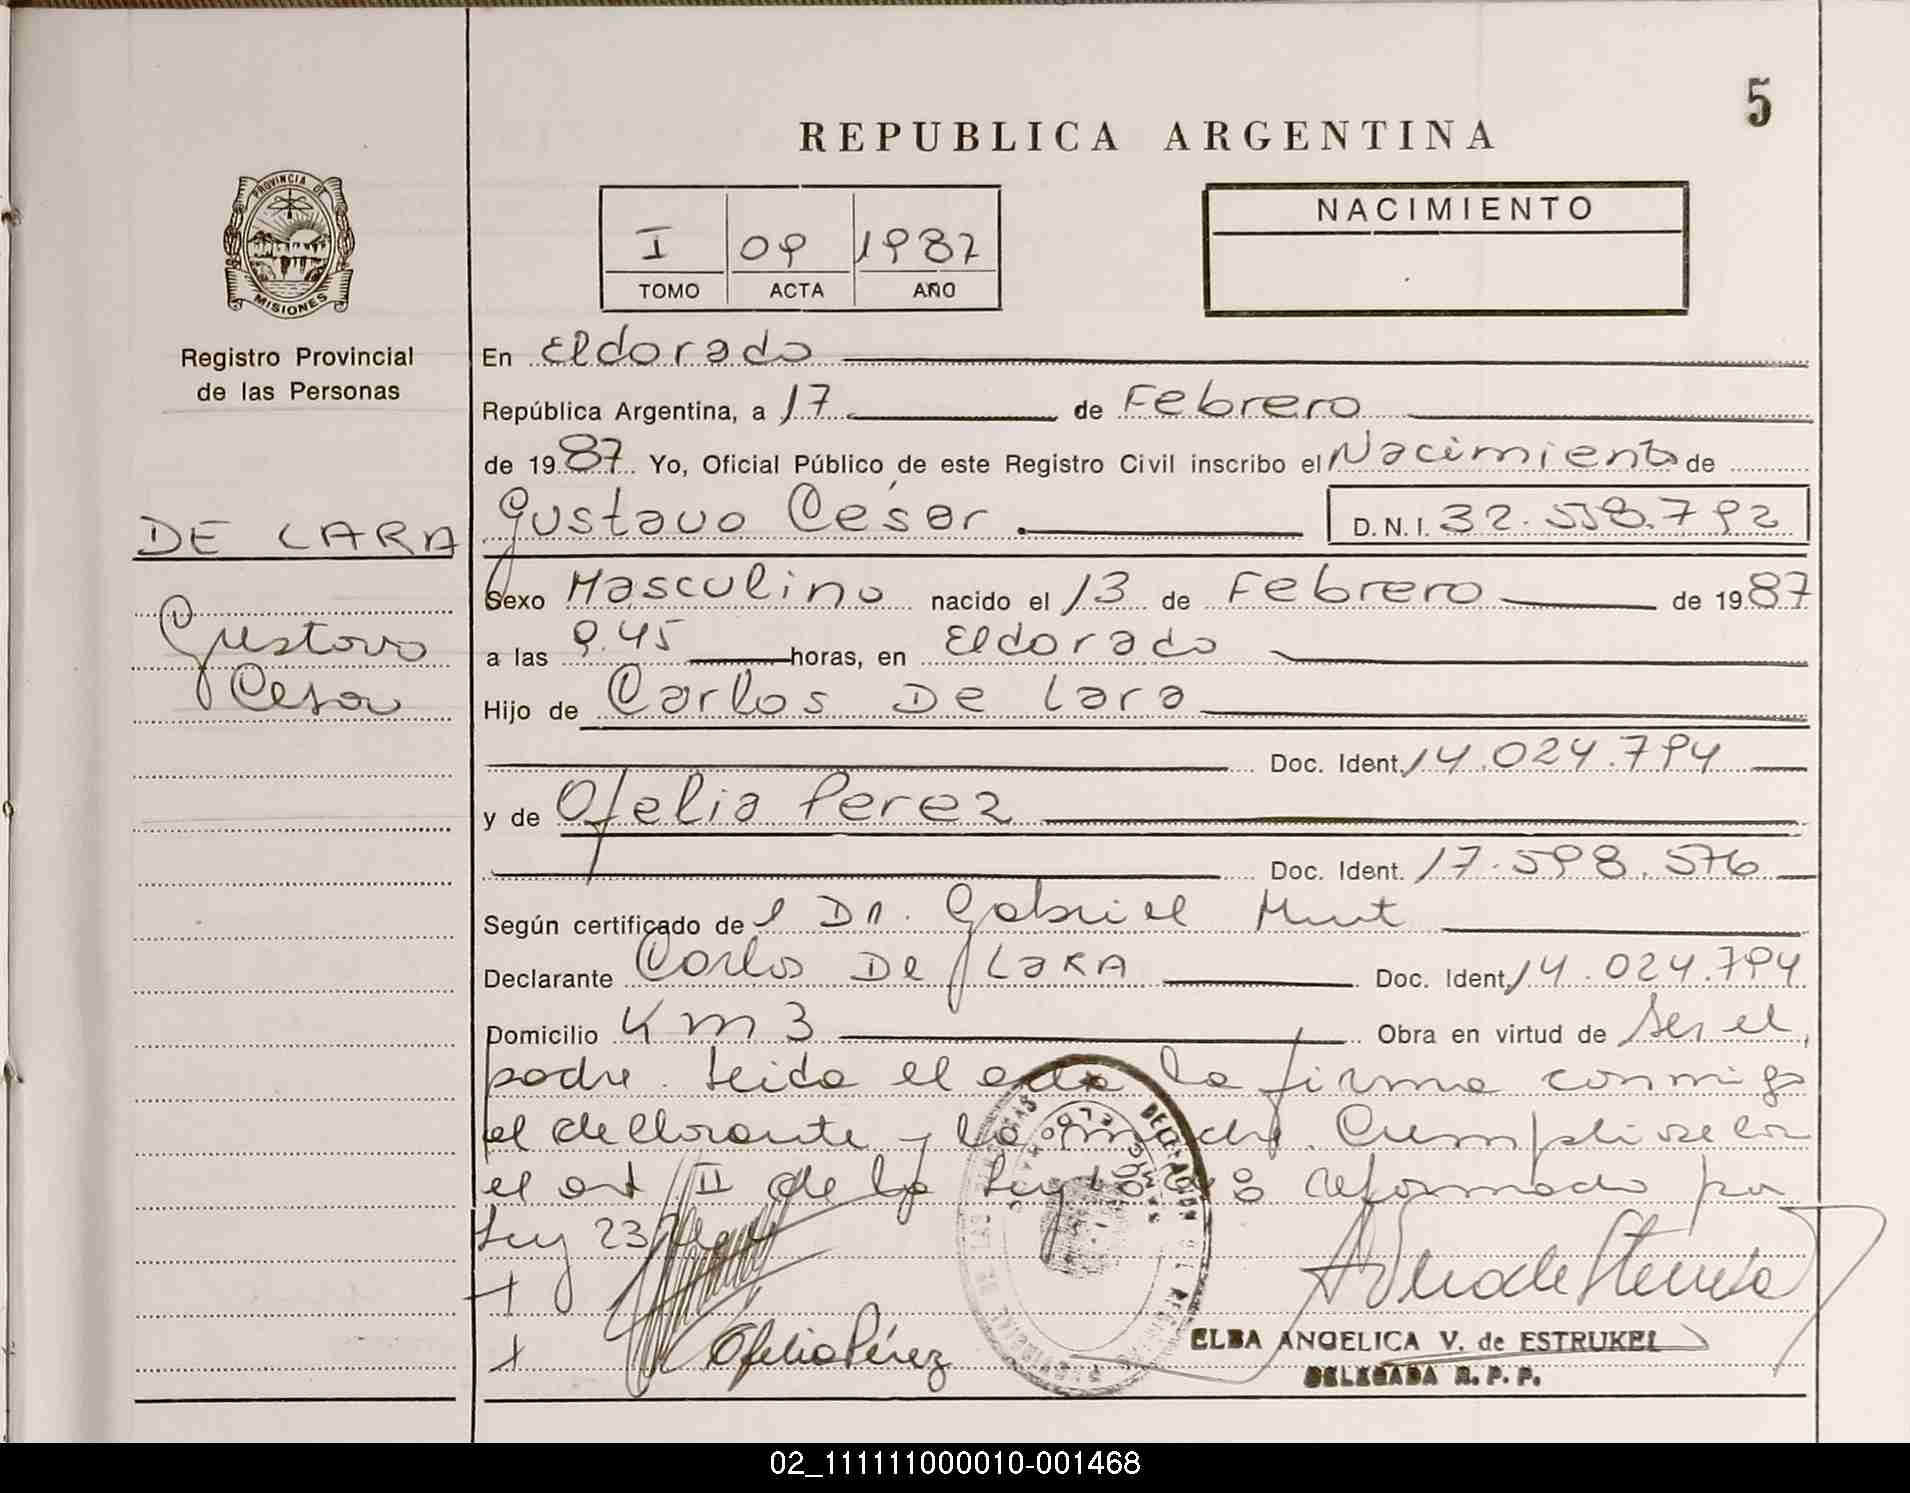 5
REPUBLICA ARGENTINA
PROVINCIA DE
MISIONES
Registro Provincial
de las Personas
I 09 1987
TOMO ACTA AÑO
NACIMIENTO
En Eldorado
República Argentina, a 17 de Febrero
de 1987 Yo, Oficial Público de este Registro Civil inscribo el Nacimiento de
DE LARA
Gustavo
Cesar
Gustavo César. D.N.I. 32.558.792
Sexo Masculino nacido el 13 de Febrero de 1987
a las 9.45 horas, en Eldorado
Hijo de Carlos De Lara
Doc. Ident. 14.024.794
y de Ofelia Perez
Doc. Ident. 17.598.576
Según certificado de l Dr. Gabriel
Declarante Carlos De Lara Doc. Ident. 14.024.794
Domicilio Km 3 Obra en virtud de ser el
padre. Leida el acta la firma conmigo
el declarante y la madre.
el art II de la Ley reformado por
Ley
Ofelia Pérez
ELBA ANGELICA V. de ESTRUKEL
DELEGADA R. P. P.
02_111111000010-001468